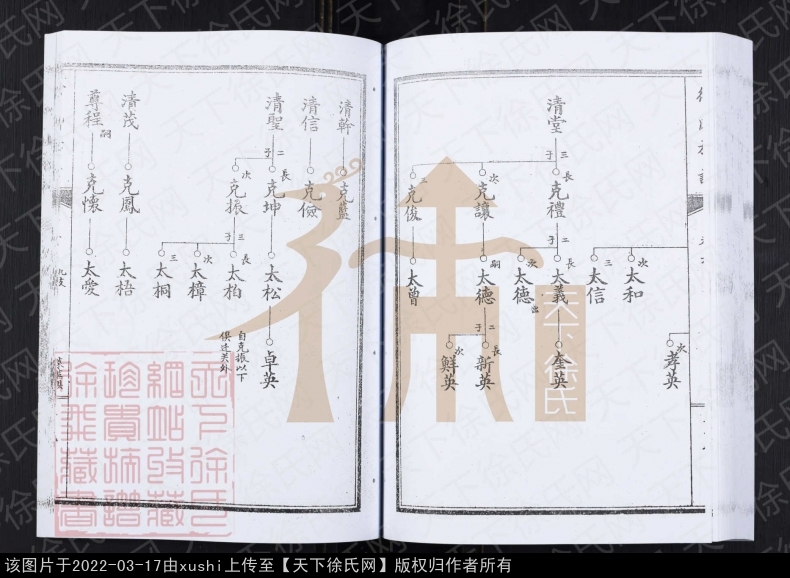 次
孝英
次
太和
三
太信
清堂
三
子
長
克禮
二
子
長
太義
奎英
次
太德
出
次
克讓
嗣
太德
二
子
長
新英
次
鮮英
克俊
太曾
清幹
克藍
清信
克儉
清聖
二
子
長
克坤
太松
卓英
次
克振
三
子
長
太柏
次
太樟
三
太桐
自克振以下
俱迁关外
清茂
克鳳
太梧
尊程
嗣
克懷
太愛
九支
天下徐氏
天下徐氏网
该图片于2022-03-17由xushi上传至【天下徐氏网】版权归作者所有